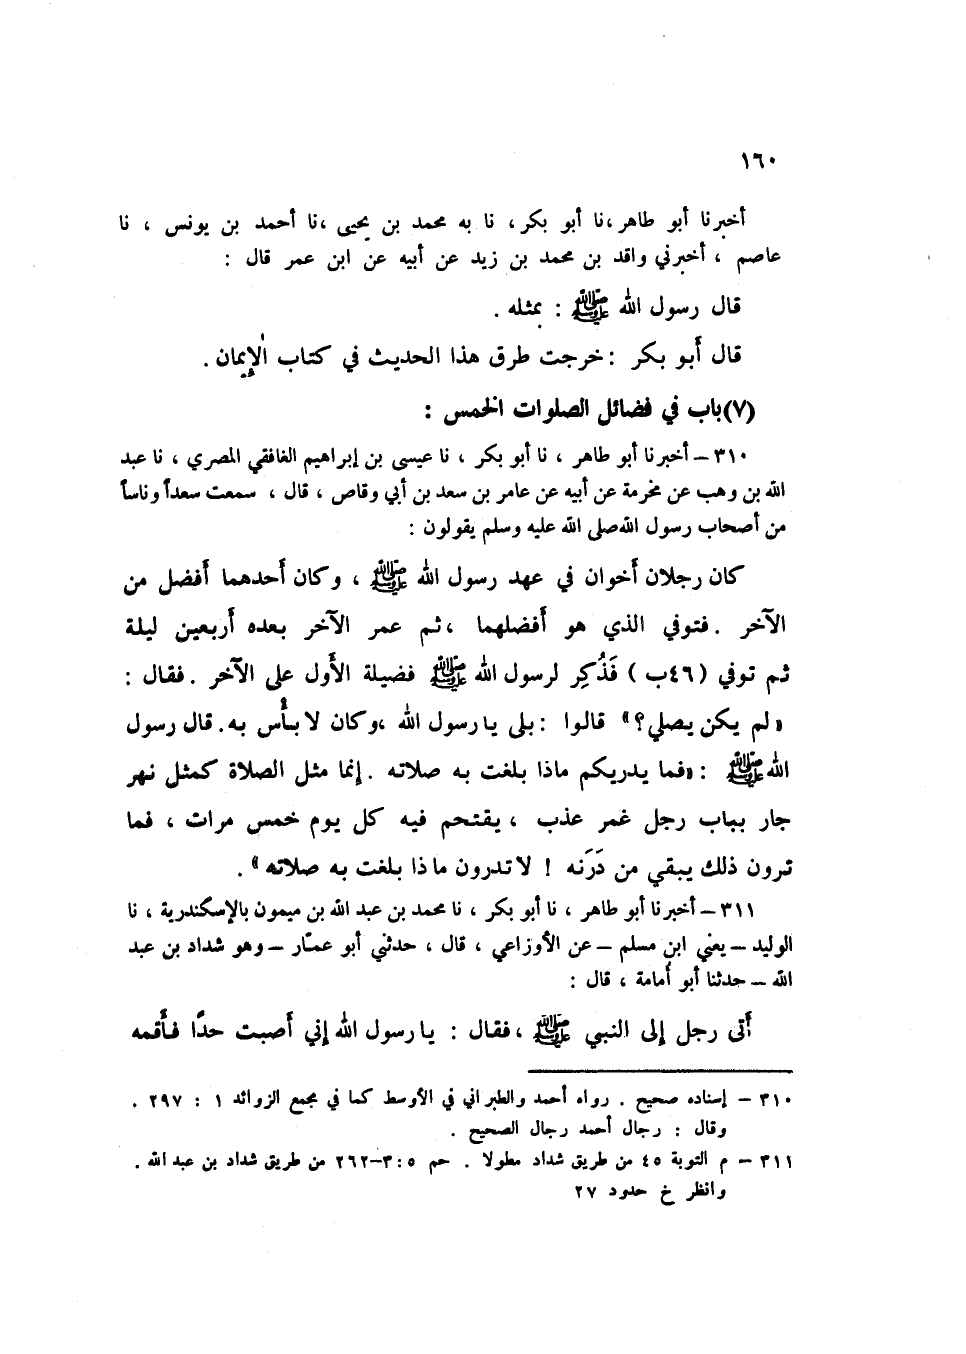 ١٦٠
أخبرنا أبو طاهر ،نا أبو بكر ، نا به محمد بن يحيى ،نا أحمد بن يونس ، نا
عاصم ، أخبرني واقد بن محمد بن زيد عن أبيه عن ابن عمر قال :
قال رسول الله ﷺ : بمثله .
قال أَبو بكر : خرجت طرق هذا الحديث في كتاب الإيمان .
(٧) باب في فضائل الصلوات الخمس :
٣١٠ – أخبرنا أبو طاهر ، نا أبو بكر ، نا عيسى بن إبراهيم الغافقي المصري ، نا عبد
الله بن وهب عن مخرمة عن أبيه عن عامر بن سعد بن أبي وقاص ، قال ، سمعت سعداً وناساً
من أصحاب رسول الله صلى الله عليه وسلم يقولون :
كان رجلان أَخوان في عهد رسول الله ﷺ ، وكان أَحدهما أَفضل من
الآخر . فتوفي الذي هو أَفضلهما ، ثم عمر الآخر بعده أَربعين ليلة
ثم توفي (٤٦ب) فَذُكِر لرسول الله ﷺ فضيلة الأَول على الآخر . فقال :
«لم يكن يصلي؟» قالوا : بلى يا رسول الله ،وكان لا بأْس به. قال رسول
الله ﷺ : «فما يدريكم ماذا بلغت به صلاته . إنما مثل الصلاة كمثل نهر
جار بباب رجل غمر عذب ، يقتحم فيه كل يوم خمس مرات ، فما
ترون ذلك يبقي من دَرَنه ! لا تدرون ماذا بلغت به صلاته» .
٣١١ – أخبرنا أبو طاهر ، نا أبو بكر ، نا محمد بن عبد الله بن ميمون بالإسكندرية ، نا
الوليد – يعني ابن مسلم – عن الأوزاعي ، قال ، حدثني أبو عمّار – وهو شداد بن عبد
الله – حدثنا أبو أُمامة ، قال :
أَتى رجل إلى النبي ﷺ ، فقال : يا رسول الله إني أَصبت حدًّا فأَقمه
٣١٠ – إسناده صحيح . رواه أحمد والطبراني في الأوسط كما في مجمع الزوائد ١ : ٢٩٧ .
وقال : رجال أحمد رجال الصحيح .
٣١١ – م التوبة ٤٥ من طريق شداد مطولا . حم ٥ :٣–٢٦٢ من طريق شداد بن عبد الله .
وانظر خ حدود ٢٧